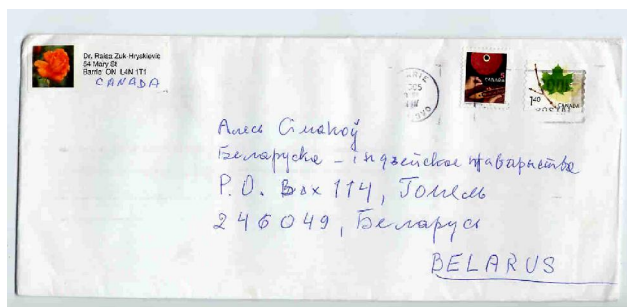 Dr. Raisa Zuk-Hryskievic
54 Mary St
Barrie ON L4N 1T1
CANADA
5
CANADA
1.40
CANADA
Алесь Сімакоў
Беларуска-індзейскае таварыства
P.O. Box 114, Гомель
246049, Беларусь
BELARUS